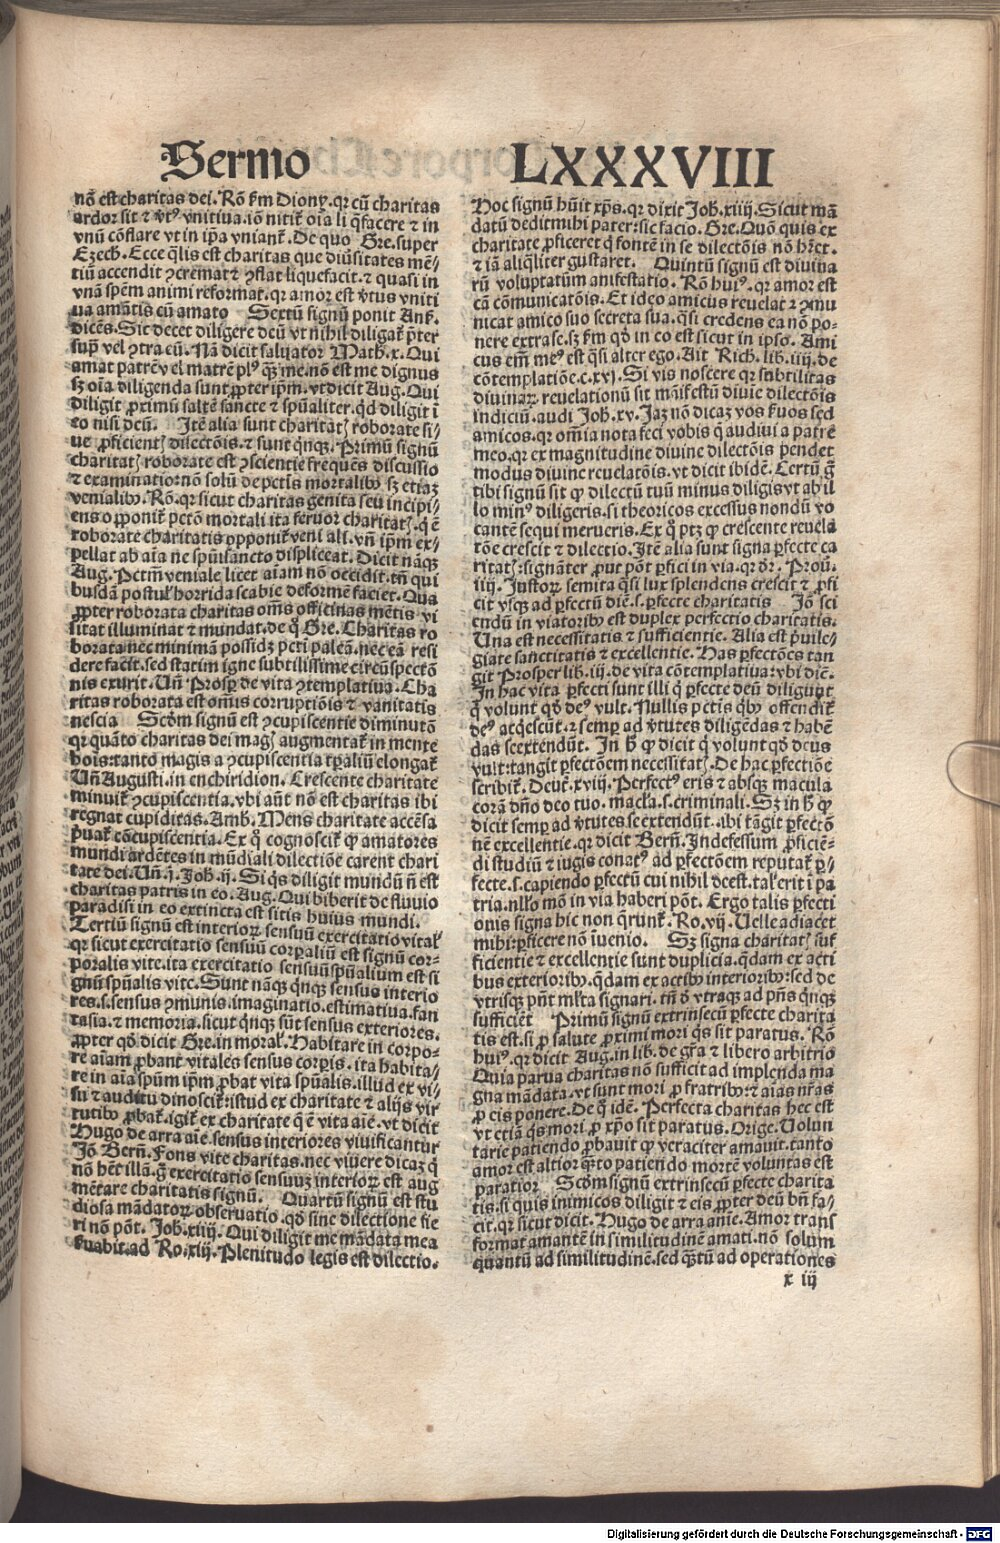 Sermo LXXXVIII
nõ est charitas dei. Rõ ẜm Diony. qr cũ charitas
ardor sit ⁊ v̾tꝰ vnitiua. iõ nitit̃ oĩa li q̃facere ⁊ in
vnũ cõflare vt in ip̃a vniant̃. De quo Gre. super
Ezech. Ecce q̃lis est charitas que diũsitates mẽ/
tiũ accendit ꝯcremat ⁊ ꝯflat liquefacit. ⁊ quasi in
vnã spẽm animi reformat. qr amor est v̾tus vniti
ua amãtis cũ amato Sextũ signũ ponit Anẜ.
dicẽs. Sic decet diligere deũ vt nihil diligat̃ p̃ter
sup̃ vel ꝯtra eũ. Nã dicit saluator Math. x. Qui
amat patrẽ vel matrẽ plꝰ q̃ꝫ me. nõ est me dignus
sꝫ oĩa diligenda sunt ꝓpter ip̃m. vt dicit Aug. Qui
diligit ꝓximũ saltẽ sancte ⁊ sp̃ualiter. qd̓ diligit ĩ
eo nisi deũ. Itẽ alia sunt charitatꝭ roborate si/
ue ꝓficientꝭ dilectõis. ⁊ sunt q̃nqꝫ. Primũ signũ
charitatꝭ roborate est ꝯscientie frequẽs discussio
⁊ examinatio: nõ solũ de pctis mortalibꝰ sꝫ etiaꝫ
venialibꝰ. Rõ. qr sicut charitas genita seu incipi/
ens oꝓponit̃ pctõ mortali ita feruor charitatꝭ. q̃ ẽ
roborate charitatis opponit̃ veni ali. vñ ip̃m ex/
pellat ab aĩa ne spũisancto displiceat. Dicit nãqꝫ
Aug. Pctm̃ veniale licet aĩam nõ occidit. tñ qui
busdã postul̓ horrida scabie deformẽ faciet. Qua
ꝓpter roborata charitas oẽs officinas mẽtis vi
sitat illuminat ⁊ mundat. de q̃ Gre. Charitas ro
borata nec minimã possidꝫ pcti paleã. nec eã resi
dere facit. sed statim igne subtilissime circũspectõ
nis exurit. Uñ Prosꝑ de vita ꝯtemplatiua. Cha
ritas roborata est om̃is corruptiõis ⁊ vanitatis
nescia Scdm̃ signũ est ꝯcupiscentie diminutõ
qr quãto charitas dei magꝭ augmentat̃ in mente
hois: tanto magis a ꝯcupiscentia tꝑaliũ elongat̃
Uñ Augusti. in enchiridion. Crescente charitate
minuit̃ ꝯcupiscentia. vbi aũt nõ est charitas ibi
regnat cupiditas. Amb. Mens charitate accẽsa
p̃uat̃ cõcupiscentia. Ex q̃ cognoscit̃ ꝙ amatores
mundi ardẽtes in mũdiali dilectiõe carent chari
tate dei. Uñ. j. Joh. ij. Si q̃s diligit mundũ ñ est
charitas patris in eo. Aug. Qui biberit de fluuio
paradisi in eo extincta est sitis huius mundi.
Tertiũ signũ est interioꝝ sensuũ exercitatio vital̓
qr sicut exercitatio sensuũ corꝑaliũ est signũ cor-
poralis vite. ita exercitatio sensuũ sp̃ualium est si
gnũ sp̃ualis vite. Sunt nãqꝫ q̃nqꝫ sensus interio
res. s. sensus ꝯmunis. imaginatio. estimatiua. fan
tasia. ⁊ memoria. sicut q̃nqꝫ sũt sensus exteriores.
ꝓpter qd̓ dicit Gre. in moral̓. Habitare in corpo-
re aĩam ꝓbant vitales sensus corpis. ita habita/
re in aĩa spũm ip̃m ꝓbat vita sp̃ualis. illud ex vi/
su ⁊ auditu dinoscit̃: istud ex charitate ⁊ alijs vir
tutibꝰ ꝓbat̃. igit̃ ex charitate q̃ ẽ vita aĩe. vt dicit
Hugo de arra aĩe. sensus interiores viuificantur
Jõ Berñ. Fons vite charitas. nec viuere dicaꝫ q̃
nõ het̃ illã. g̃ exercitatio sensuuꝫ interioꝝ est aug
mẽtare charitatis signũ. Quartũ signũ est stu
diosa mãdatoꝝ obseruatio. qd̓ sine dilectione fie
ri nõ põt. Joh. xiiij. Qui diligit me mãdata mea
ẜuabit. ad Ro. xiij. Plenitudo legis est dilectio.
Hoc signũ hũit xp̃s. qr dixit Joh. xiiij. Sicut mã
datũ dedit mihi pater: sic facio. Gre. Quõ quis ex
charitate ꝓficeret q̃ fontẽ in se dilectõis nõ hr̃et.
⁊ iã aliq̃liter gustaret. Quintũ signũ est diuina
rũ voluptatũm anifestatio. Rõ huiꝰ. qr amor est
cã cõmunicatõis. Et ideo amicus reuelat ⁊ ꝯmu
nicat amico suo secreta sua. q̃si credens ea nõ po-
nere extra se. sꝫ ẜm qd̓ in eo est sicut in ipso. Ami
cus em̃ meꝰ est q̃si alter ego. Ait Rich. lib. iiij. de
cõtemplatiõe. c. xvj. Si vis noscere qr subtilitas
diuinaꝝ reuelationũ sit mãifestũ diuie dilectõis
indiciũ. audi Joh. xv. Jaꝫ nõ dicaꝫ vos ẜuos sed
amicos. qr om̃ia nota feci vobis q̃ audiui a patre
meo. qr ex magnitudine diuine dilectõis p̃endet
modus diuine reuelatõis. vt dicit ibidẽ. Certũ g̃
tibi signũ sit ꝙ dilectũ tuũ minus diligis vt ab il
lo minꝰ diligeris. si theoricos excessus nondũ vo
cantẽ sequi merueris. Ex q̃ ptꝫ ꝙ crescente reuela
tõe crescit ⁊ dilectio. Itẽ alia sunt signa ꝑfecte ca
ritatꝭ: signãter ꝓut põt ꝑfici in via. qr dr̃. Prou̓.
iiij. Justoꝝ semita q̃si lux splendens crescit ⁊ ꝓfi
cit vsqꝫ ad ꝑfectũ diẽ. s. ꝑfecte charitatis Jõ sci
endũ in viatoribꝰ est duplex perfectio charitatis.
Una est necessitatis ⁊ sufficientie. Alia est p̃uile-
giate sanctitatis ⁊ excellentie. Has ꝑfectões tan
git Prosper lib. iij. de vita cõtemplatiua: vbi dic̃.
In hac vita ꝑfecti sunt illi q̃ ꝑfecte deũ diligunt
q̃ volunt qd̓ deꝰ vult. Nullis pctis q̃bꝰ offendit̃
deꝰ acq̃escũt. ⁊ semꝑ ad v̾tutes diligẽdas ⁊ habẽ
das se extendũt. In h̃ ꝙ dicit q̃ volunt qd̓ deus
vult: tangit ꝑfectõem necessitatꝭ. De hac ꝑfectiõe
scribit̃. Deut̃. xviij. Perfectꝰ eris ⁊ absqꝫ macula
corã dño deo tuo. macl̓a. s. criminali. Sꝫ in h̃ ꝙ
dicit semꝑ ad v̾tutes se extendũt. ibi tãgit ꝑfectõ
nẽ excellentie. qr dicit Berñ. Indefessum ꝓficiẽ-
di studiũ ⁊ iugis conatꝰ ad ꝑfectõem reputat̃ ꝑ/
fecte. s. capiendo ꝑfectũ cui nihil deest. tal̓ erit ĩ pa
tria. nllo mõ in via haberi põt. Ergo talis ꝑfecti
onis signa hic non q̃runt̃. Ro. vij. Uelle adiacet
mihi: ꝑficere nõ ĩuenio. Sꝫ signa charitatꝭ suf
ficientie ⁊ excellentie sunt duplicia. q̃dam ex acti
bus exterioribꝰ. q̃dam ex actibꝰ interioribꝰ: sed de
vtrisqꝫ pñt ml̓ta signari. tñ ꝺ vtraqꝫ ad p̃ns q̃nqꝫ
sufficiẽt Primũ signũ extrinsecũ ꝑfecte charita
tis est. si ꝓ salute ꝓximi mori q̃s sit paratus. Rõ
huiꝰ. qr dicit Aug. in lib. de gr̃a ⁊ libero arbitrio
Quia parua charitas nõ sufficit ad implenda ma
gna mãdata. vt sunt mori ꝓ fratribꝰ: ⁊ aĩas nr̃as
ꝓ eis ponere. De q̃ idẽ. Perfecta charitas hec est
vt etiã q̃s mori ꝓ xp̃o sit paratus. Orige. Uolun
tarie patiendo ꝓbauit ꝙ veraciter amauit. tanto
amor est altior q̃ꝫto patiendo mortẽ voluntas est
paratior Scdm̃ signũ extrinsecũ ꝑfecte charita
tis. si quis inimicos diligit ⁊ eis ꝓpter deũ bñ fa/
cit. qr sicut dicit. Hugo de arra anie. Amor trans
format amantẽ in similitudinẽ amati. nõ solum
quantũ ad similitudinẽ. sed q̃ꝫtũ ad operationes
x iij
Digitalisierung gefördert durch die Deutsche Forschungsgemeinschaft - DFG